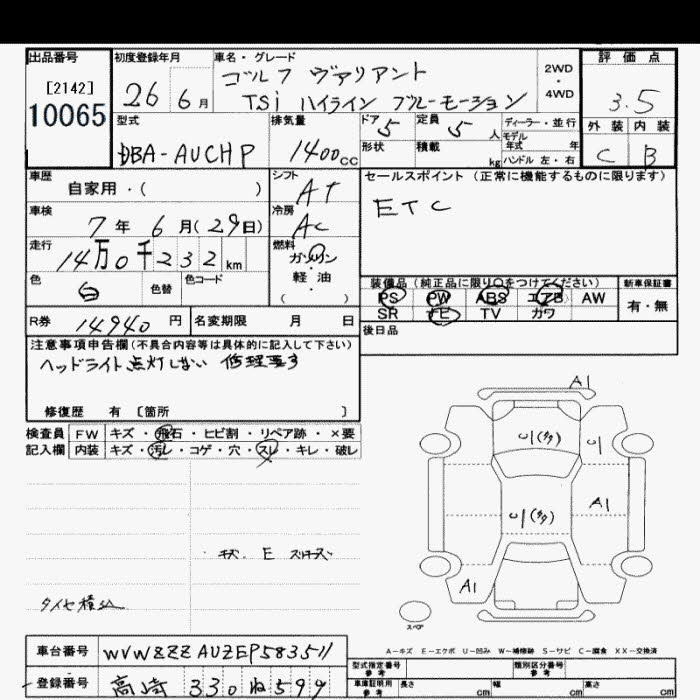 出品番号 初度登録年月 車名・グレード 評価点
[2142] ゴルフ ヴァリアント 2WD
10065 26 6月 TSi ハイライン ブルーモーション ・ 4WD 3.5
型式 排気量 ドア 定員 ディーラー・並行 外装 内装
DBA-AUCHP 1400cc 5 5人 モデル年式 年 C B
形状 積載 kg ハンドル 左・右
車歴 シフト セールスポイント(正常に機能するものに限ります)
自家用・( ) AT ETC
車検 冷房
7年 6月(29日) AC
走行 燃料
14万0千232km ガソリン
色 色替 色コード 軽・油
白 ( )
装備品(純正品に限り○をつけてください) 新車保証書
PS PW ABS エアB AW 有・無
SR ナビ TV カワ
R券 14940円 名変期限 月 日 後日品
注意事項申告欄(不具合内容等は具体的に記入して下さい)
ヘッドライト点灯しない 修理要す
修復歴 有 〔箇所 〕
検査員 FW キズ・飛石・ヒビ割・リペア跡・×要
記入欄 内装 キズ・汚レ・コゲ・穴・スレ・キレ・破レ
A1
U(多) U
U(多) A1
A1
キズ. E
タイヤ積込
スペア
A-キズ E-エクボ U-凹み W-補修跡 S-サビ C-腐食 XX-交換済
車台番号 WVWZZZAUZEP583511
型式指定番号 参考 類別区分番号 参考
登録番号 高崎 330 ね 599
車庫証明用 参考 長さ cm 幅 cm 高さ cm